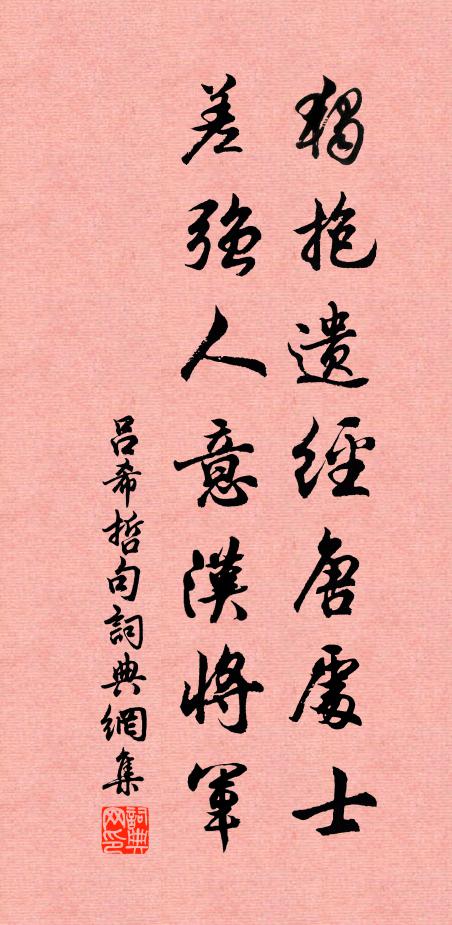 獨抱遺經唐處士
差強人意漢將軍
呂希哲句詞典網集
詞典网印